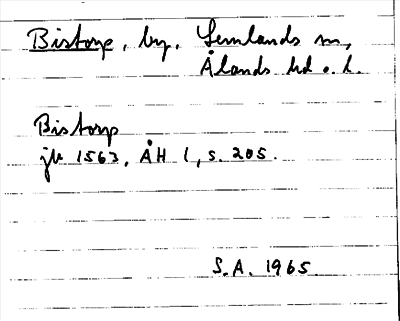 Bistorp, by, Lemlands sn,
Ålands hd o. l.
Bistorp
jb 1563, ÅH 1, s. 205.
S.A. 1965.